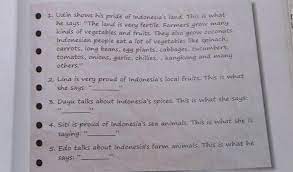 1. Udin shows his pride of Indonesia's land. This is what
he says: "The land is very fertile. Farmers grow many
kinds of vegetables and fruits. They also grow coconuts.
Indonesian people eat a lot of vegetables like spinach,
carrots, long beans, egg plants, cabbages, cucumbers,
tomatoes, onions, garlic, chillies, kangkung and many
others."
2. Lina is very proud of Indonesia's local fruits. This is what
she says: "______"
3. Dayu talks about Indonesia's spices. This is what she says:
"______"
4. Siti is proud of Indonesia's sea animals. This is what she is
saying: "______"
5. Edo talks about Indonesia's farm animals. This is what he
says: "______"